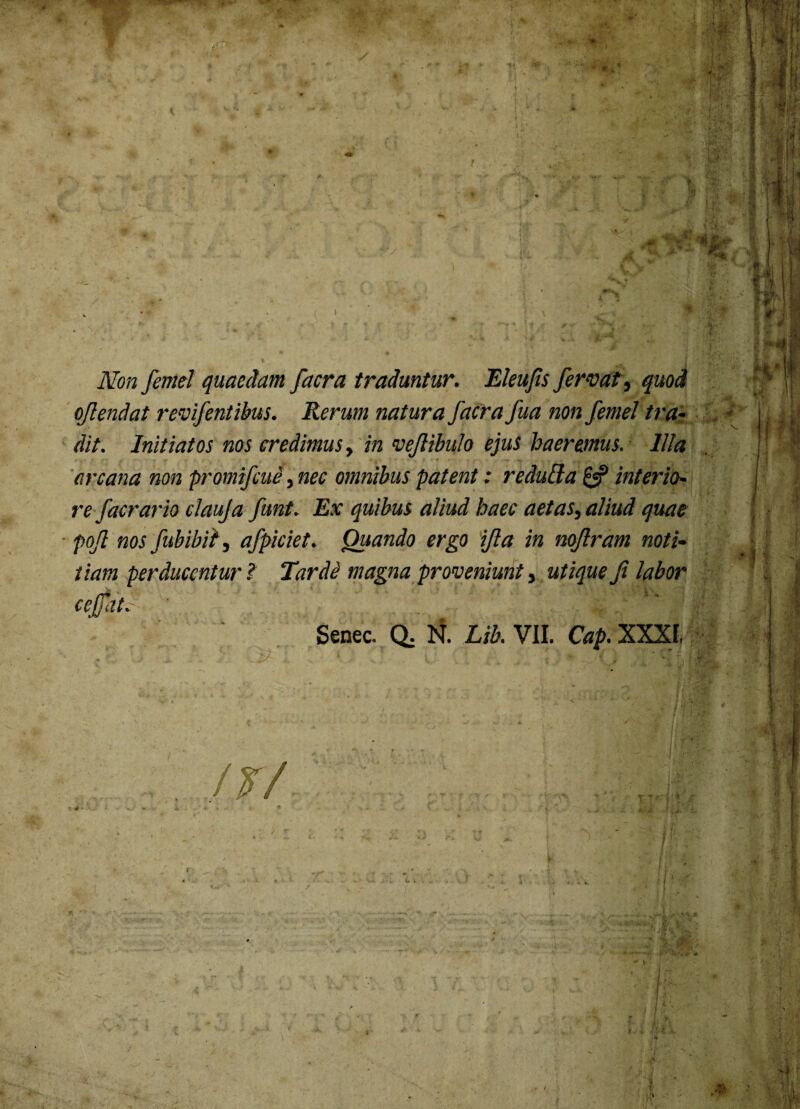 Non ſemel quaedam ſacra traduntur. Eleuſis ſervat, quod
oſtendat reviſentibus. Rerum natura ſacra ſua non ſemel tra-
dit. Initiatos nos credimus, in veſtibulo ejus haeremus. Illa
arcana non promiſcuè, nec omnibus patent: reducta & interio-
re ſacrario clauſa ſunt. Ex quibus aliud haec aetas, aliud quae
poſt nos ſubibit, aſpiciet. Quando ergo iſta in noſtram noti-
tiam perducentur? Tardè magna proveniunt, utique ſi labor
ceſſat.
Senec. Q. N. Lib. VII. Cap. XXXI.